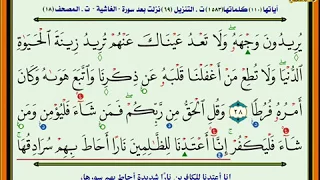 آياتها (١١٠) كلماتها (١٥٨٣) ت. التنزيل (٦٩) نزلت بعد سورة - الغاشية - ت. المصحف (١٨)
يُرِيدُونَ وَجْهَهُۥ وَلَا تَعْدُ عَيْنَاكَ عَنْهُمْ تُرِيدُ زِينَةَ ٱلْحَيَوٰةِ
ٱلدُّنْيَا وَلَا تُطِعْ مَنْ أَغْفَلْنَا قَلْبَهُۥ عَن ذِكْرِنَا وَٱتَّبَعَ هَوَىٰهُ وَكَانَ
أَمْرُهُۥ فُرُطًا ٢٨ وَقُلِ ٱلْحَقُّ مِن رَّبِّكُمْ فَمَن شَآءَ فَلْيُؤْمِن وَمَن
شَآءَ فَلْيَكْفُرْ إِنَّآ أَعْتَدْنَا لِلظَّٰلِمِينَ نَارًا أَحَاطَ بِهِمْ سُرَادِقُهَا
إنا أعتدنا للكافرين نارًا شديدة أحاط بهم سورها